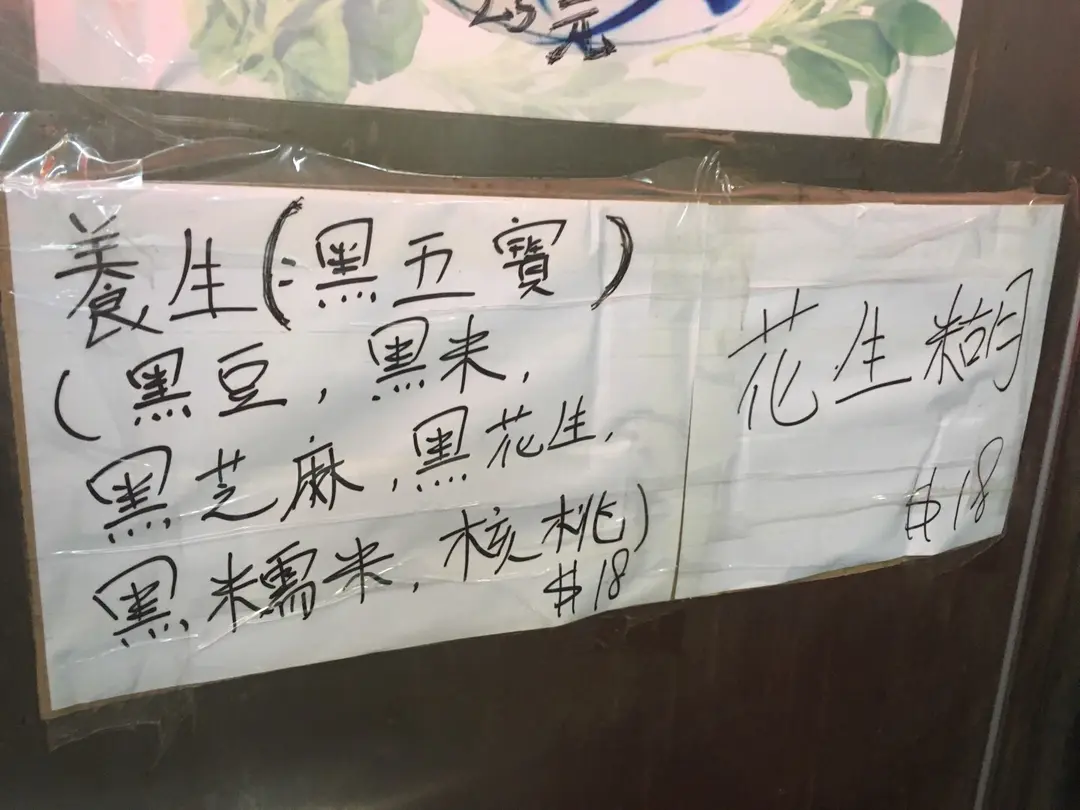 25元
養生(:黑五寶)
(黑豆,黑米,
黑芝麻,黑花生,
黑糯米,核桃)
$18
花生糊
$18